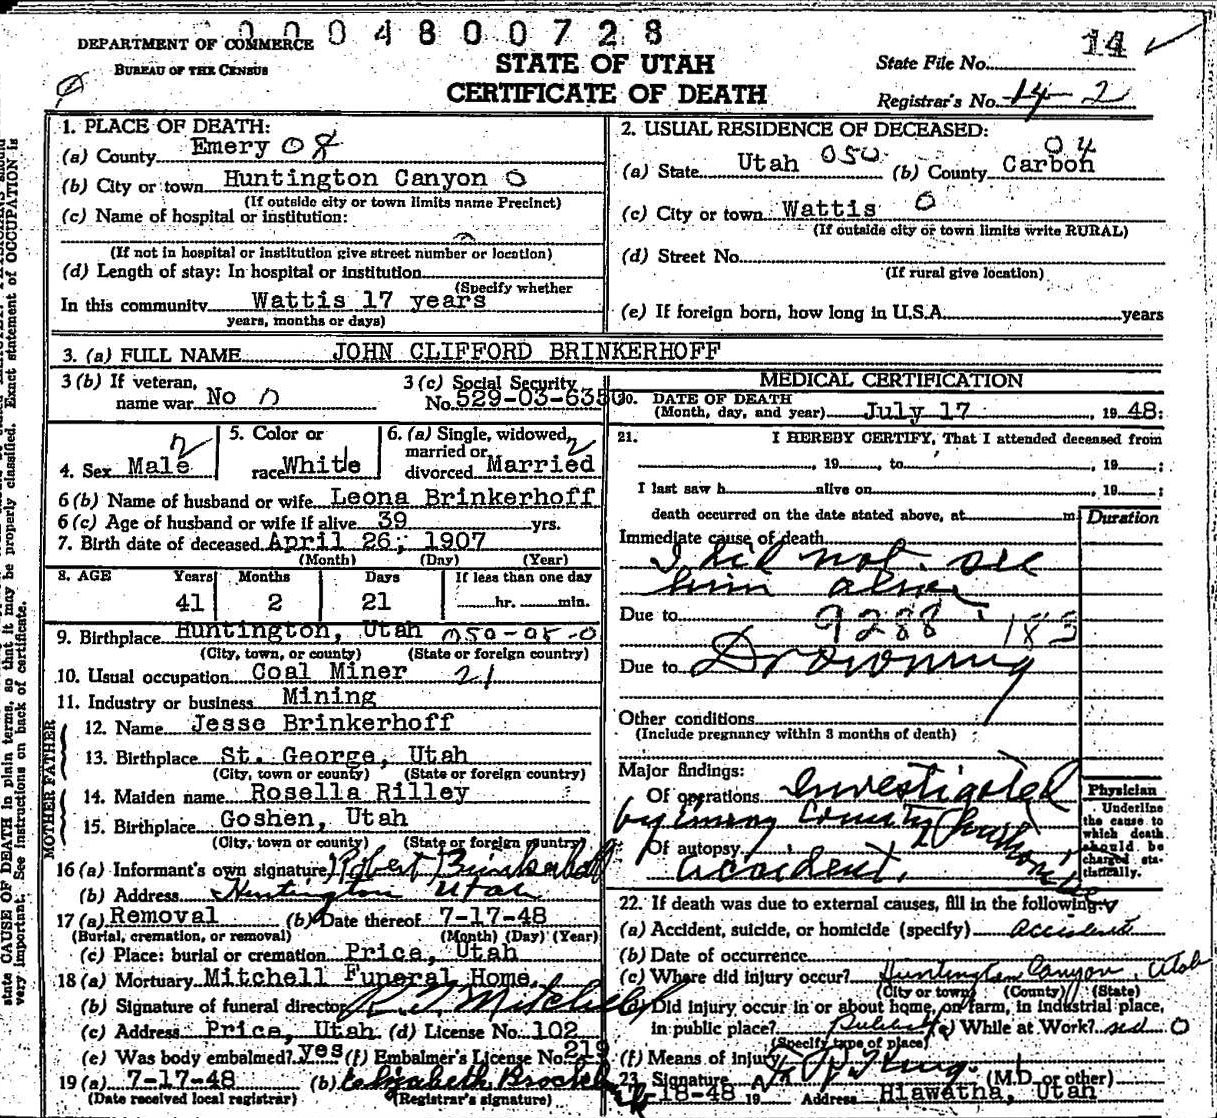 0004800728
14
DEPARTMENT OF COMMERCE
BUREAU OF THE CENSUS
STATE OF UTAH
CERTIFICATE OF DEATH
State File No.
Registrar's No. 14-2
1. PLACE OF DEATH:
(a) County Emery 08
(b) City or town Huntington Canyon 0
(If outside city or town limits name Precinct)
(c) Name of hospital or institution:
(If not in hospital or institution give street number or location)
(d) Length of stay: In hospital or institution
(Specify whether
In this community Wattis 17 years
years, months or days)
2. USUAL RESIDENCE OF DECEASED:
(a) State Utah 050 (b) County Carbon 04
(c) City or town Wattis 0
(If outside city or town limits write RURAL)
(d) Street No.
(If rural give location)
(e) If foreign born, how long in U.S.A. years
3. (a) FULL NAME JOHN CLIFFORD BRINKERHOFF
3 (b) If veteran,
name war No 0
3 (c) Social Security
No. 529-03-6350
4. Sex Male
5. Color or
race White
6. (a) Single, widowed,
married or
divorced Married
6 (b) Name of husband or wife Leona Brinkerhoff
6 (c) Age of husband or wife if alive 39 yrs.
7. Birth date of deceased April 26, 1907
(Month) (Day) (Year)
8. AGE Years Months Days If less than one day
41 2 21 hr. min.
9. Birthplace Huntington, Utah 050-08-0
(City, town, or county) (State or foreign country)
10. Usual occupation Coal Miner 21
11. Industry or business Mining
FATHER
12. Name Jesse Brinkerhoff
13. Birthplace St. George, Utah
(City, town or county) (State or foreign country)
MOTHER
14. Maiden name Rosella Rilley
15. Birthplace Goshen, Utah
(City, town or county) (State or foreign country)
16 (a) Informant's own signature Robert Brinkerhoff
(b) Address Huntington Utah
17 (a) Removal (b) Date thereof 7-17-48
(Burial, cremation, or removal) (Month) (Day) (Year)
(c) Place: burial or cremation Price, Utah
18 (a) Mortuary Mitchell Funeral Home
(b) Signature of funeral director R. J. Mitchell
(c) Address Price, Utah (d) License No. 102
(e) Was body embalmed? yes (f) Embalmer's License No. 219
19 (a) 7-17-48 (b) Elizabeth
(Date received local registrar) (Registrar's signature)
MEDICAL CERTIFICATION
20. DATE OF DEATH
(Month, day, and year) July 17, 1948:
21. I HEREBY CERTIFY, That I attended deceased from
, 19 , to , 19 ;
I last saw h alive on , 19 ;
death occurred on the date stated above, at m. Duration
Immediate cause of death
I did not see
him alive
Due to 9288 183
Due to Drowning
Other conditions
(Include pregnancy within 3 months of death)
Major findings:
Of operations Investigated
by Emery County
Of autopsy
accident.
Physician
Underline
the cause to
which death
should be
charged sta-
tistically.
22. If death was due to external causes, fill in the following:
(a) Accident, suicide, or homicide (specify) Accident
(b) Date of occurrence
(c) Where did injury occur? Huntington Canyon, Utah
(City or town) (County) (State)
(d) Did injury occur in or about home, on farm, in industrial place,
in public place? Public (e) While at Work? 0
(Specify type of place)
(f) Means of injury
23. Signature (M.D. or other)
18-48 19 Address Hiawatha, Utah
state CAUSE OF DEATH in plain terms, so that it may be properly classified. Exact statement of OCCUPATION is
very important. See instructions on back of certificate.